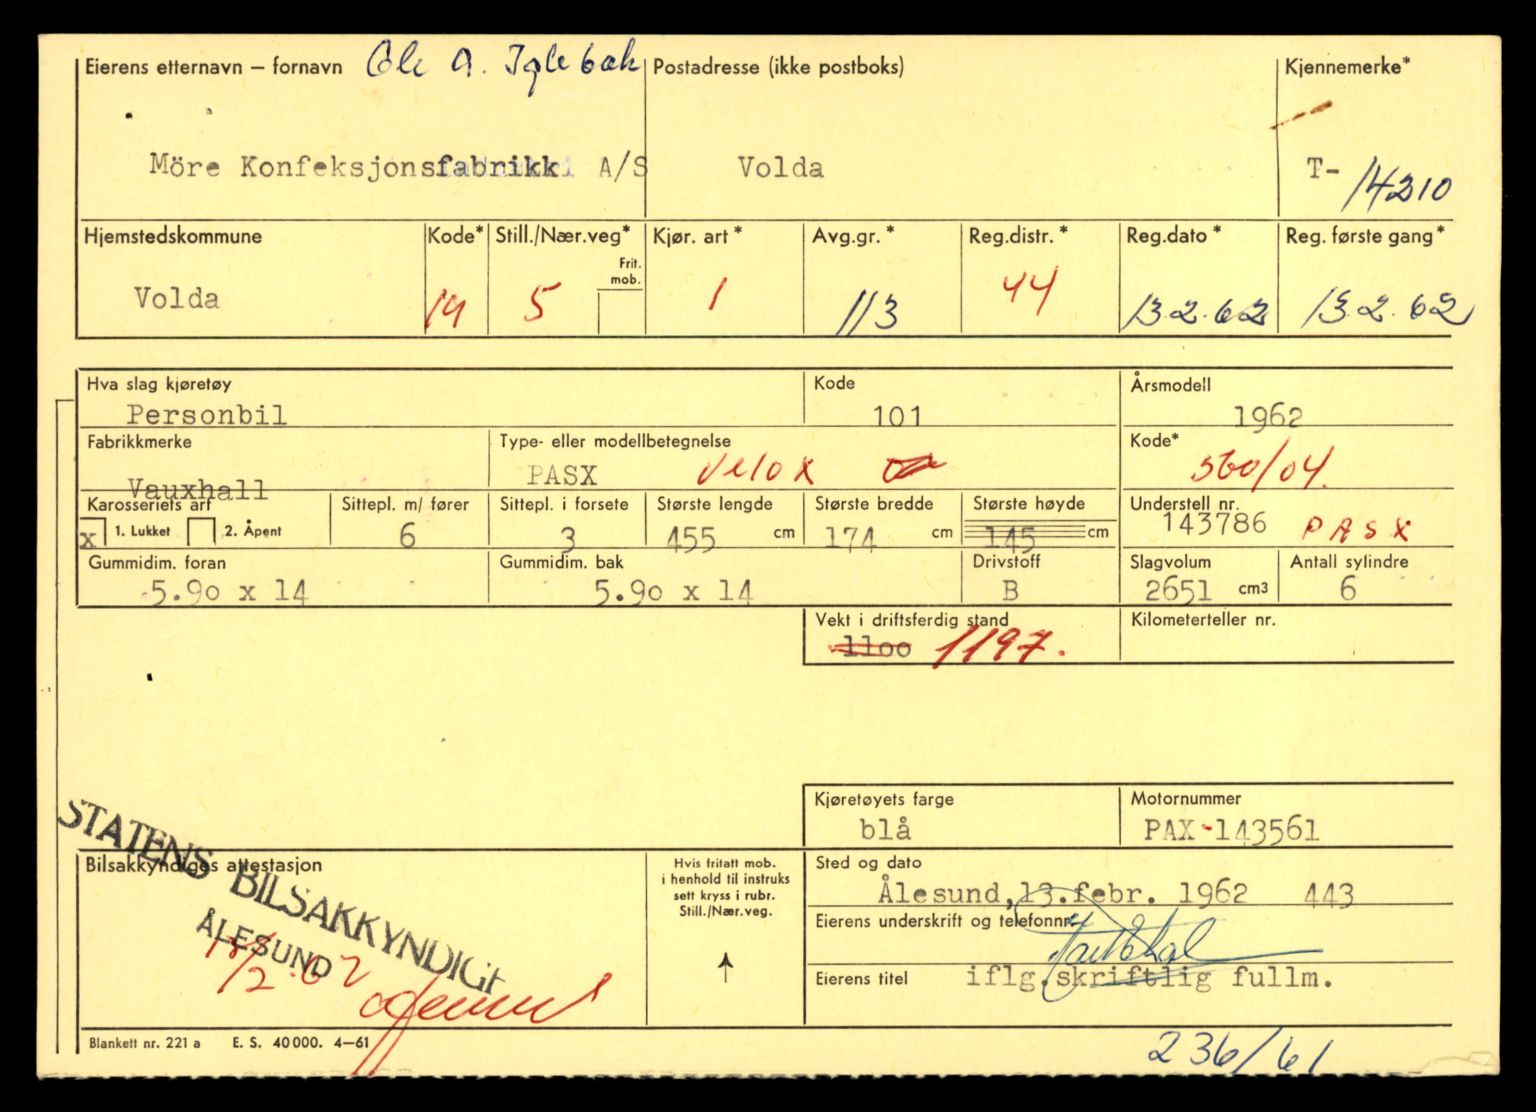 Eierens etternavn – fornavn Ole A. Iglebak Postadresse (ikke postboks) Kjennemerke*
Möre Konfeksjonsfabrikk A/S Volda T- 14210
Hjemstedskommune Kode* Still./Nær.veg* Kjør. art * Avg.gr. * Reg.distr. * Reg.dato * Reg. første gang *
Frit. mob.
Volda 19 5 1 113 44 13.2.62 13.2.62
Hva slag kjøretøy Kode Årsmodell
Personbil 101 1962
Fabrikkmerke Type- eller modellbetegnelse Kode*
Vauxhall PASX Velox 560/04.
Karosseriets art Sittepl. m/ fører Sittepl. i forsete Største lengde Største bredde Største høyde Understell nr.
x 1. Lukket 2. Åpent 6 3 455 cm 174 cm 145 cm 143786 PASX
Gummidim. foran Gummidim. bak Drivstoff Slagvolum Antall sylindre
5.90 x 14 5.90 x 14 B 2651 cm3 6
Vekt i driftsferdig stand Kilometerteller nr.
1100 1197.
Kjøretøyets farge Motornummer
blå PAX-143561
STATENS BILSAKKYNDIGE
ÅLESUND
Bilsakkyndiges attestasjon
Hvis fritatt mob.
i henhold til instruks
sett kryss i rubr.
Still./Nær.veg.
Sted og dato
Ålesund, 13.febr. 1962 443
Eierens underskrift og telefonnr.
Eierens titel iflg.skriftlig fullm.
Blankett nr. 221 a E. S. 40 000. 4–61
236/61